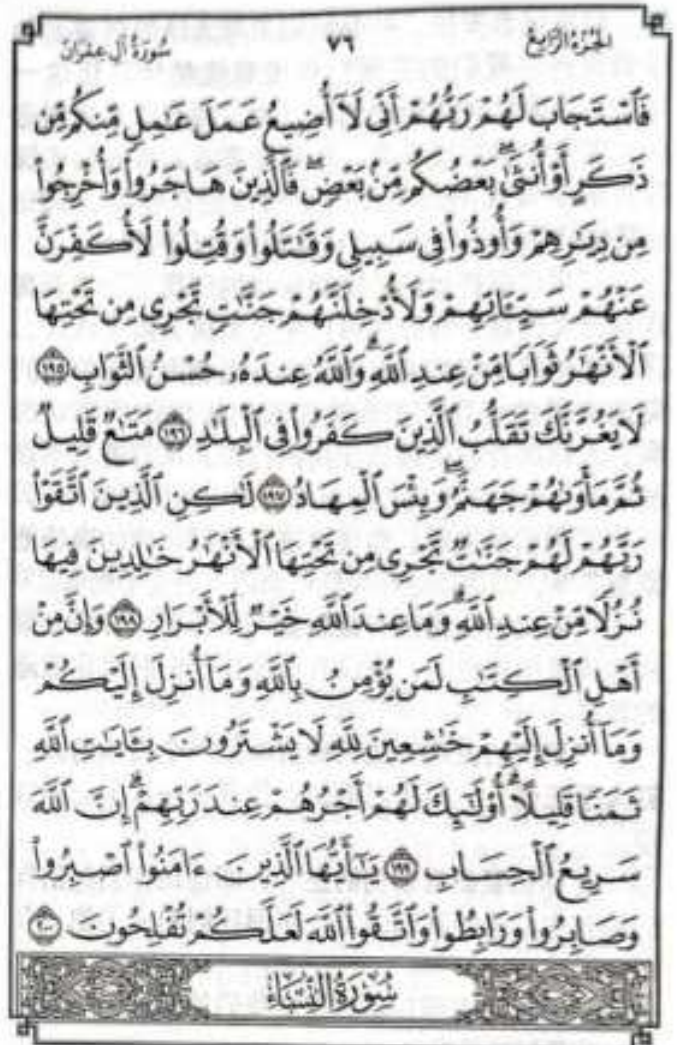 الجزء الرابع ٧٦ سورة آل عمران
فَٱسْتَجَابَ لَهُمْ رَبُّهُمْ أَنِّي لَآ أُضِيعُ عَمَلَ عَٰمِلٍ مِّنكُم مِّن
ذَكَرٍ أَوْ أُنثَىٰۖ بَعْضُكُم مِّنۢ بَعْضٍۖ فَٱلَّذِينَ هَاجَرُوا۟ وَأُخْرِجُوا۟
مِن دِيَٰرِهِمْ وَأُوذُوا۟ فِى سَبِيلِى وَقَٰتَلُوا۟ وَقُتِلُوا۟ لَأُكَفِّرَنَّ
عَنْهُمْ سَيِّـَٔاتِهِمْ وَلَأُدْخِلَنَّهُمْ جَنَّٰتٍ تَجْرِى مِن تَحْتِهَا
ٱلْأَنْهَٰرُ ثَوَابًا مِّنْ عِندِ ٱللَّهِۗ وَٱللَّهُ عِندَهُۥ حُسْنُ ٱلثَّوَابِ ١٩٥
لَا يَغُرَّنَّكَ تَقَلُّبُ ٱلَّذِينَ كَفَرُوا۟ فِى ٱلْبِلَٰدِ ١٩٦ مَتَٰعٌ قَلِيلٌ
ثُمَّ مَأْوَىٰهُمْ جَهَنَّمُۖ وَبِئْسَ ٱلْمِهَادُ ١٩٧ لَٰكِنِ ٱلَّذِينَ ٱتَّقَوْا۟
رَبَّهُمْ لَهُمْ جَنَّٰتٌ تَجْرِى مِن تَحْتِهَا ٱلْأَنْهَٰرُ خَٰلِدِينَ فِيهَا
نُزُلًا مِّنْ عِندِ ٱللَّهِۗ وَمَا عِندَ ٱللَّهِ خَيْرٌ لِّلْأَبْرَارِ ١٩٨ وَإِنَّ مِنْ
أَهْلِ ٱلْكِتَٰبِ لَمَن يُؤْمِنُ بِٱللَّهِ وَمَآ أُنزِلَ إِلَيْكُمْ
وَمَآ أُنزِلَ إِلَيْهِمْ خَٰشِعِينَ لِلَّهِ لَا يَشْتَرُونَ بِـَٔايَٰتِ ٱللَّهِ
ثَمَنًا قَلِيلًاۗ أُو۟لَٰٓئِكَ لَهُمْ أَجْرُهُمْ عِندَ رَبِّهِمْۗ إِنَّ ٱللَّهَ
سَرِيعُ ٱلْحِسَابِ ١٩٩ يَٰٓأَيُّهَا ٱلَّذِينَ ءَامَنُوا۟ ٱصْبِرُوا۟
وَصَابِرُوا۟ وَرَابِطُوا۟ وَٱتَّقُوا۟ ٱللَّهَ لَعَلَّكُمْ تُفْلِحُونَ ٢٠٠
سُورَةُ النِّسَاءِ